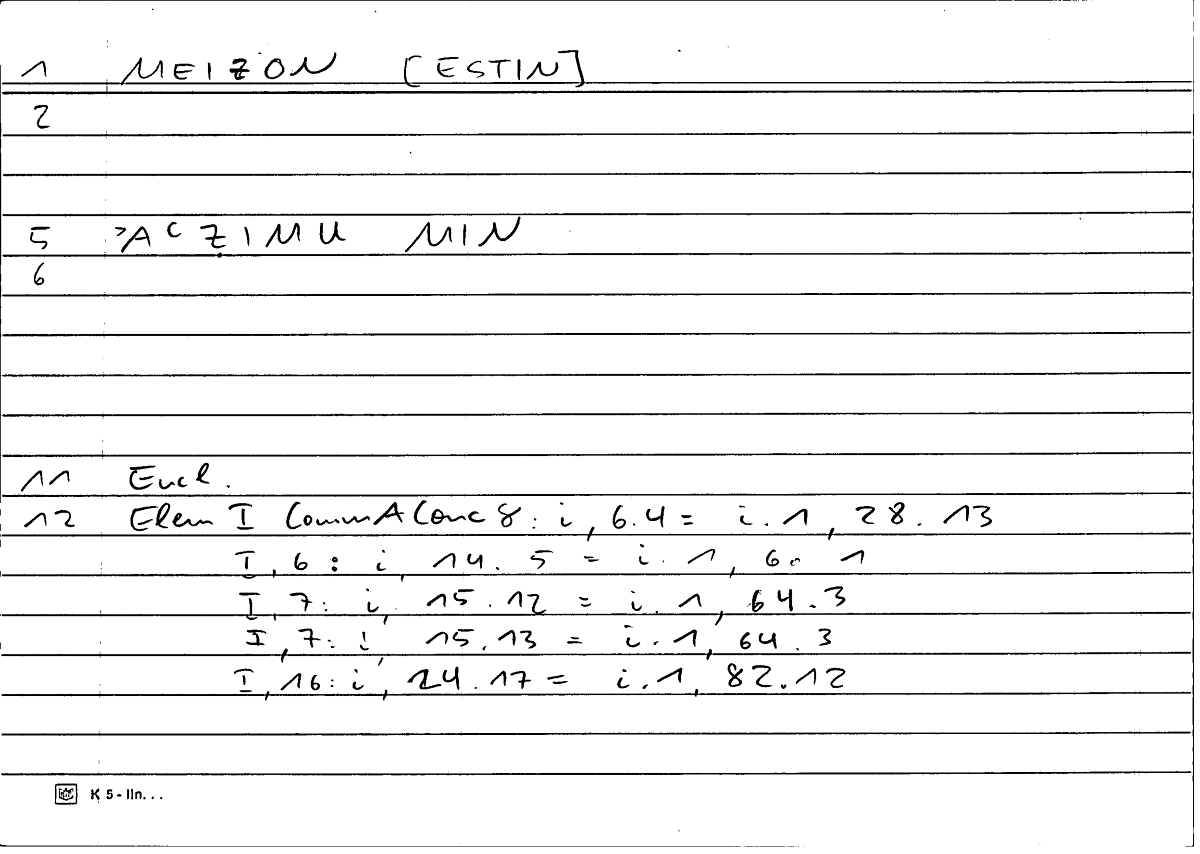 1 MEIZON [ESTIN]
2
5 ʾAʿẒIMU MIN
6
11 Eucl.
12 Elem I CommA Conc 8: i, 6.4 = i.1, 28.13
I, 6: i, 14.5 = i.1, 60.1
I, 7: i, 15.12 = i.1, 64.3
I, 7: i, 15.13 = i.1, 64.3
I, 16: i, 24.17 = i.1, 82.12
K 5 - lin...